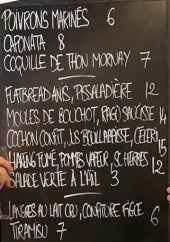 POIVRONS MARINÉS 6
CAPONATA 8
COQUILLE DE THON MORNAY 7
FLATBREAD ANIS, PISSALADIÈRE 12
MOULES DE BOUCHOT, RAGÙ SAUCISSE 14
COCHON CONFIT, JUS BOUILLABAISSE, CÉLERI 15
FUMÉ, POMMES VAPEUR, SC. HERBES 12
SALADE VERTE À L'AIL 3
LANGRES AU LAIT CRU, CONFITURE FIGUE 6
TIRAMISU 7